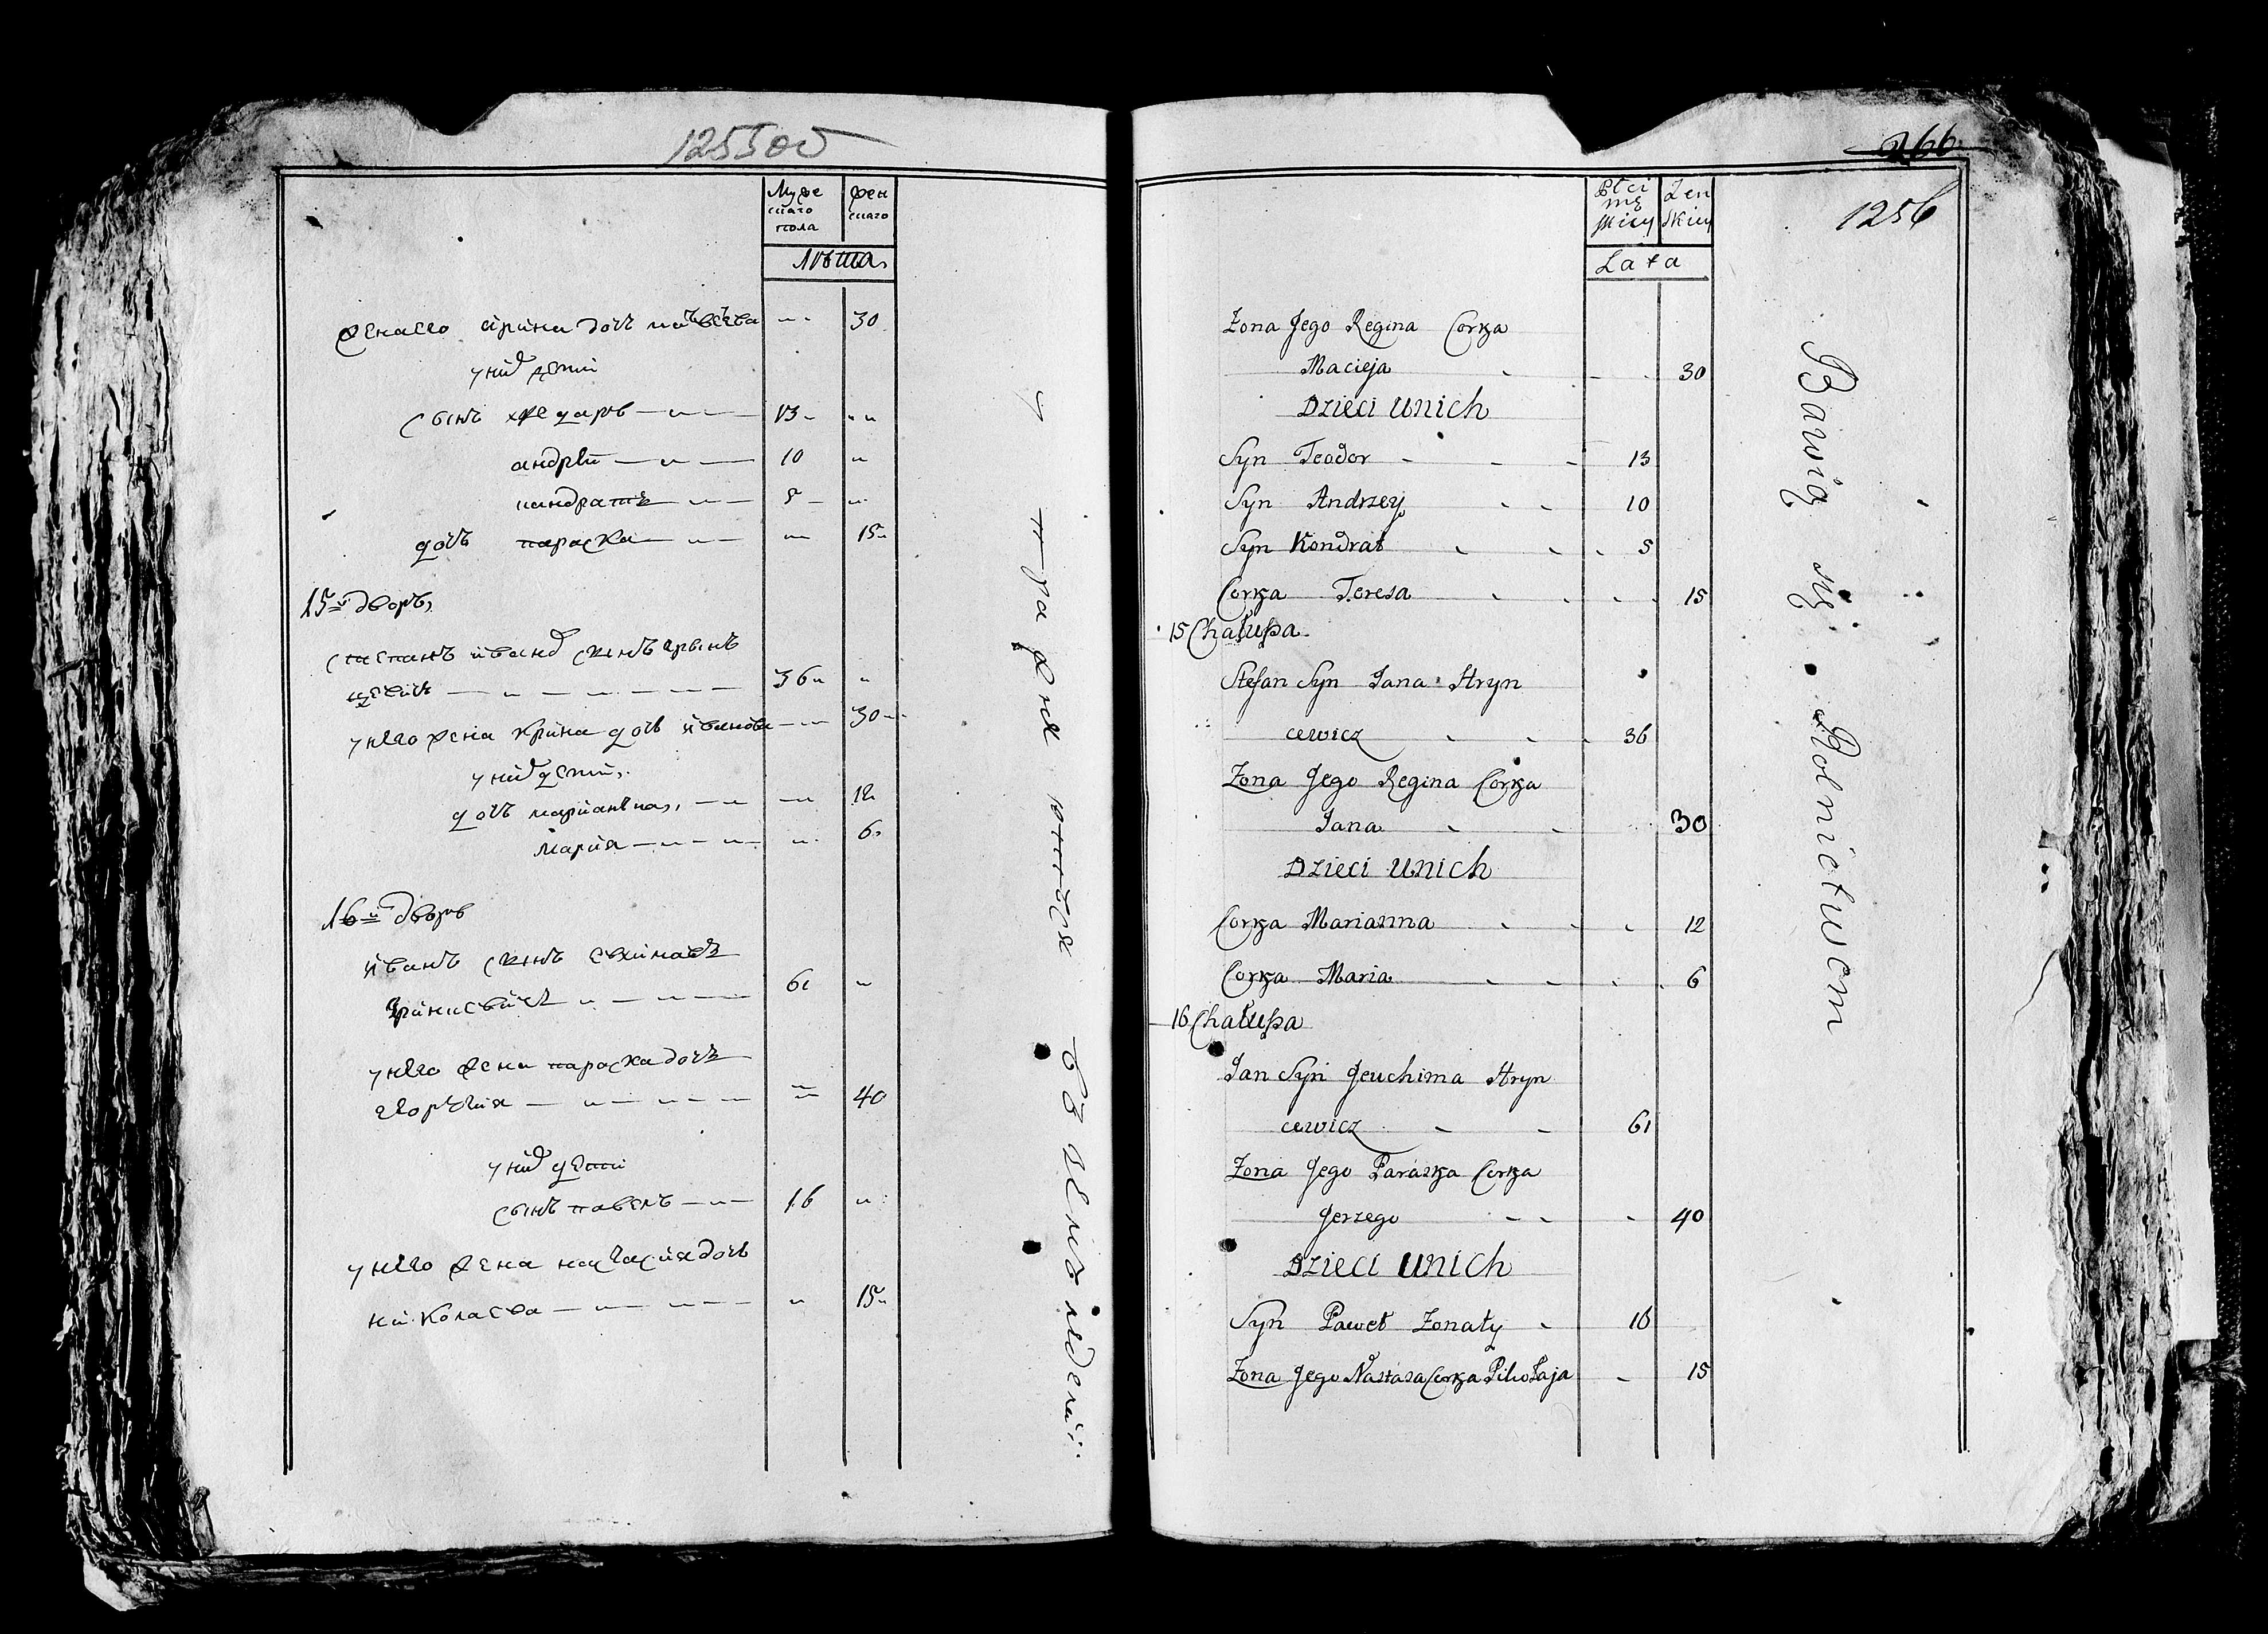 1255об
Муже
скаго
пола
жен
скаго
лѣта
жена его ирина дочь матвеева — 30
у них дети
сынъ хведаръ — 13
андрей — 10
кандратъ — 5
дочь параска — 15
15й дворъ
степанъ ивановъ сынъ грын
цевичъ — 36
у него жена ирина дочь иванова — 30
у них дети
дочь марианна — 12
мария — 6
16й дворъ
иванъ сынъ евхимовъ
гринцевичъ — 61
у него жена параска дочь
— 40
у них дети
сынъ павелъ — 16
у него жена настасия дочь
николаева — 15
упражняются
в земледелии
266
1256
Płci
mę
skiey
Zen
skiey
Lata
Zona Jego Regina Corka
Macieja 30
Dzieci unich
Syn Teodor 13
Syn Andrzey 10
Syn Kondrat 5
Corka Teresa 15
15 Chałupa
Stefan Syn Jana Hryn
cewicz 36
Zona Jego Regina Corka
Jana 30
Dzieci unich
Corka Marianna 12
Corka Maria 6
16 Chałupa
Jan Syn Jeuchima Hryn
cewicz 61
Zona Jego Paraska Corka
Jerzego 40
Dzieci unich
Syn Paweł Zonaty 16
Zona Jego Nastasa Corka 15
Bawią się Rolnictwem